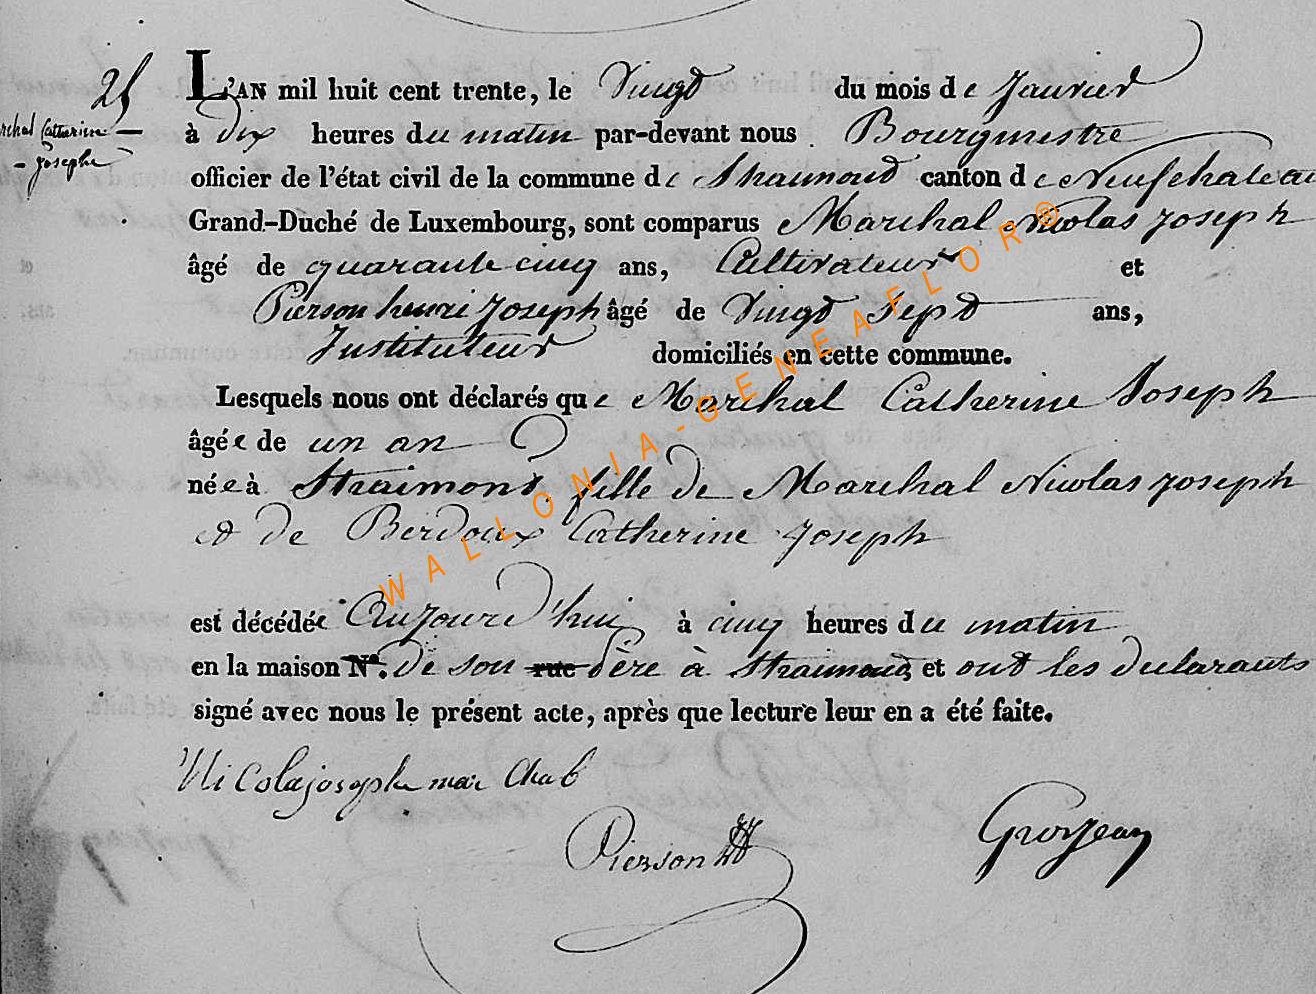 25
L'AN mil huit cent trente, le Vingt du mois de Janvier
rchal Catherine
à dix heures du matin par-devant nous Bourgmestre
Josephe
officier de l'état civil de la commune de Straimont canton de Neufchateau
Grand-Duché de Luxembourg, sont comparus Marchal Nicolas Joseph
âgé de quarante cinq ans, Cultivateur et
Pierson henri Joseph âgé de Vingt Sept ans,
Instituteur domiciliés en cette commune.
Lesquels nous ont déclarés que Marchal Catherine Joseph
âgée de un an
née à Straimont fille de Marchal Nicolas Joseph
et de Berdoux Catherine Joseph
est décédée Aujourd'hui à cinq heures du matin
en la maison N°. de son rue Père à Straimont, et ont les declarants
signé avec nous le présent acte, après que lecture leur en a été faite.
Nicolajosephe marchal
Pierson
Grosjean
WALLONIA-GENEAFLOR®